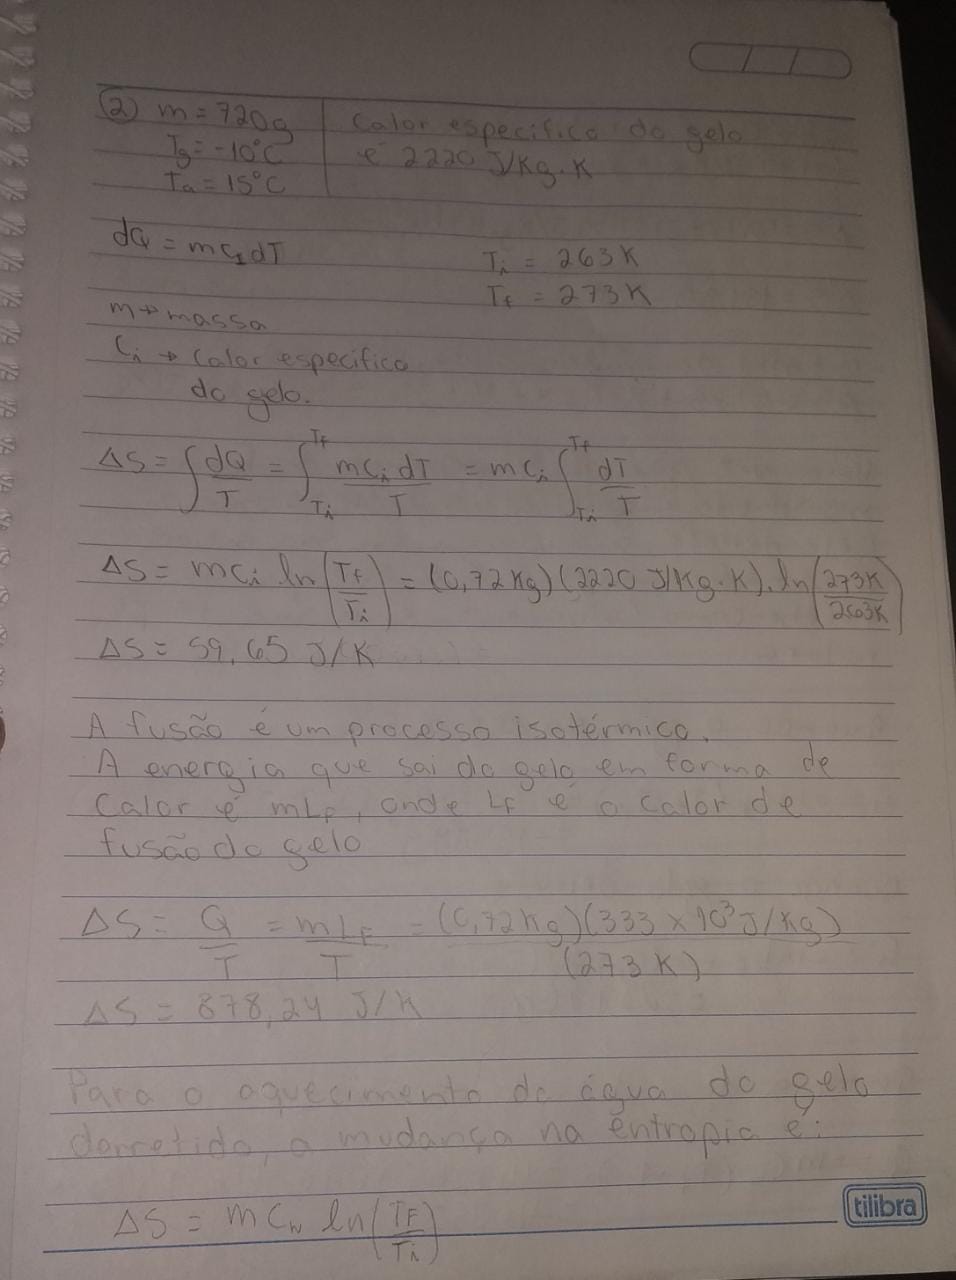 ② m = 720g | Calor especifico do gelo
Tg = -10°C | é 2220 J/Kg.K
Ta = 15°C
dQ = mc₁dT
Ti = 263K
Tf = 273K
m → massa
Ci → Calor especifico
do gelo.
ΔS = ∫ dQ/T = ∫Ti^Tf mCi dT/T = mCi ∫Ti^Tf dT/T
ΔS = mCi ln(Tf/Ti) = (0,72Kg)(2220 J/Kg.K).ln(273K/263K)
ΔS = 59,65 J/K
A fusão é um processo isotérmico.
A energia que sai do gelo em forma de
Calor é mLF, onde LF é o calor de
fusão do gelo
ΔS = Q/T = mLF/T = (0,72Kg)(333 x 10³J/Kg)/(273K)
ΔS = 878,24 J/K
Para o aquecimento da água do gelo
derretido, a mudança na entropia é:
ΔS = mCw ln(TF/Ti)
tilibra